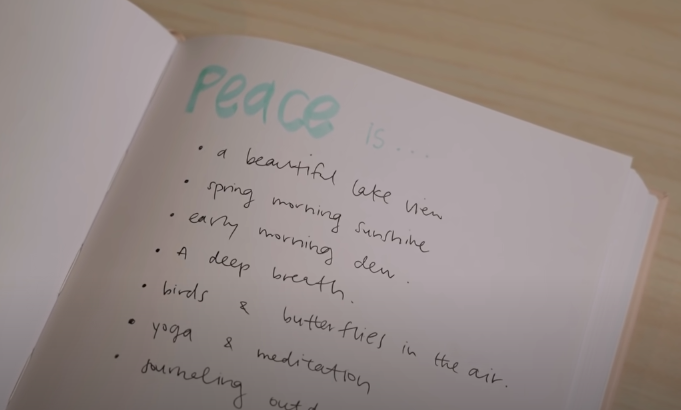 Peace is...
• a beautiful lake view
• spring morning sunshine
• early morning dew.
• A deep breath.
• birds & butterflies in the air.
• yoga & meditation
• journaling